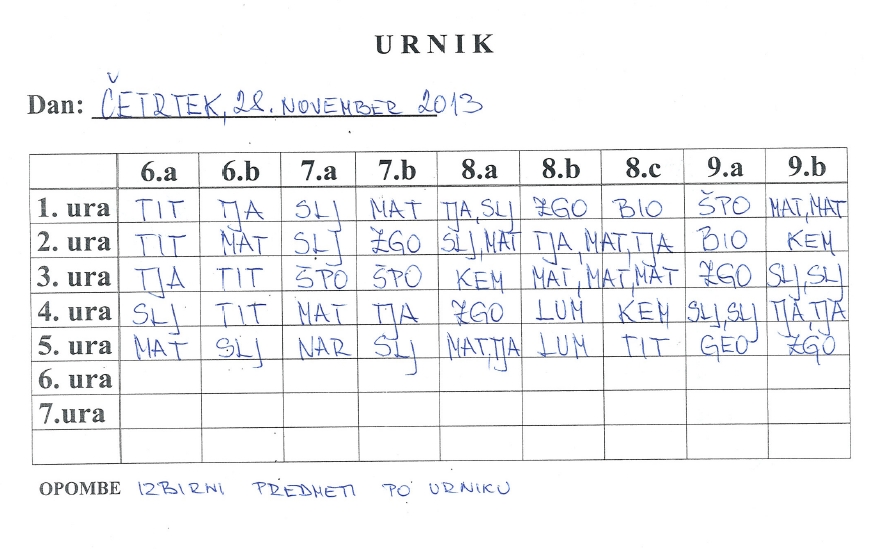 URNIK
Dan: ČETRTEK, 28. NOVEMBER 2013
6.a 6.b 7.a 7.b 8.a 8.b 8.c 9.a 9.b
1. ura TIT TJA SLJ MAT TJA,SLJ ZGO BIO ŠPO MAT,MAT
2. ura TIT MAT SLJ ZGO SLJ,MAT TJA,MAT,TJA BIO KEM
3. ura TJA TIT ŠPO ŠPO KEM MAT,MAT,MAT ZGO SLJ,SLJ
4. ura SLJ TIT MAT TJA ZGO LUM KEM SLJ,SLJ TJA,TJA
5. ura MAT SLJ NAR SLJ MAT,TJA LUM TIT GEO ZGO
6. ura
7.ura
OPOMBE IZBIRNI PREDMETI PO URNIKU